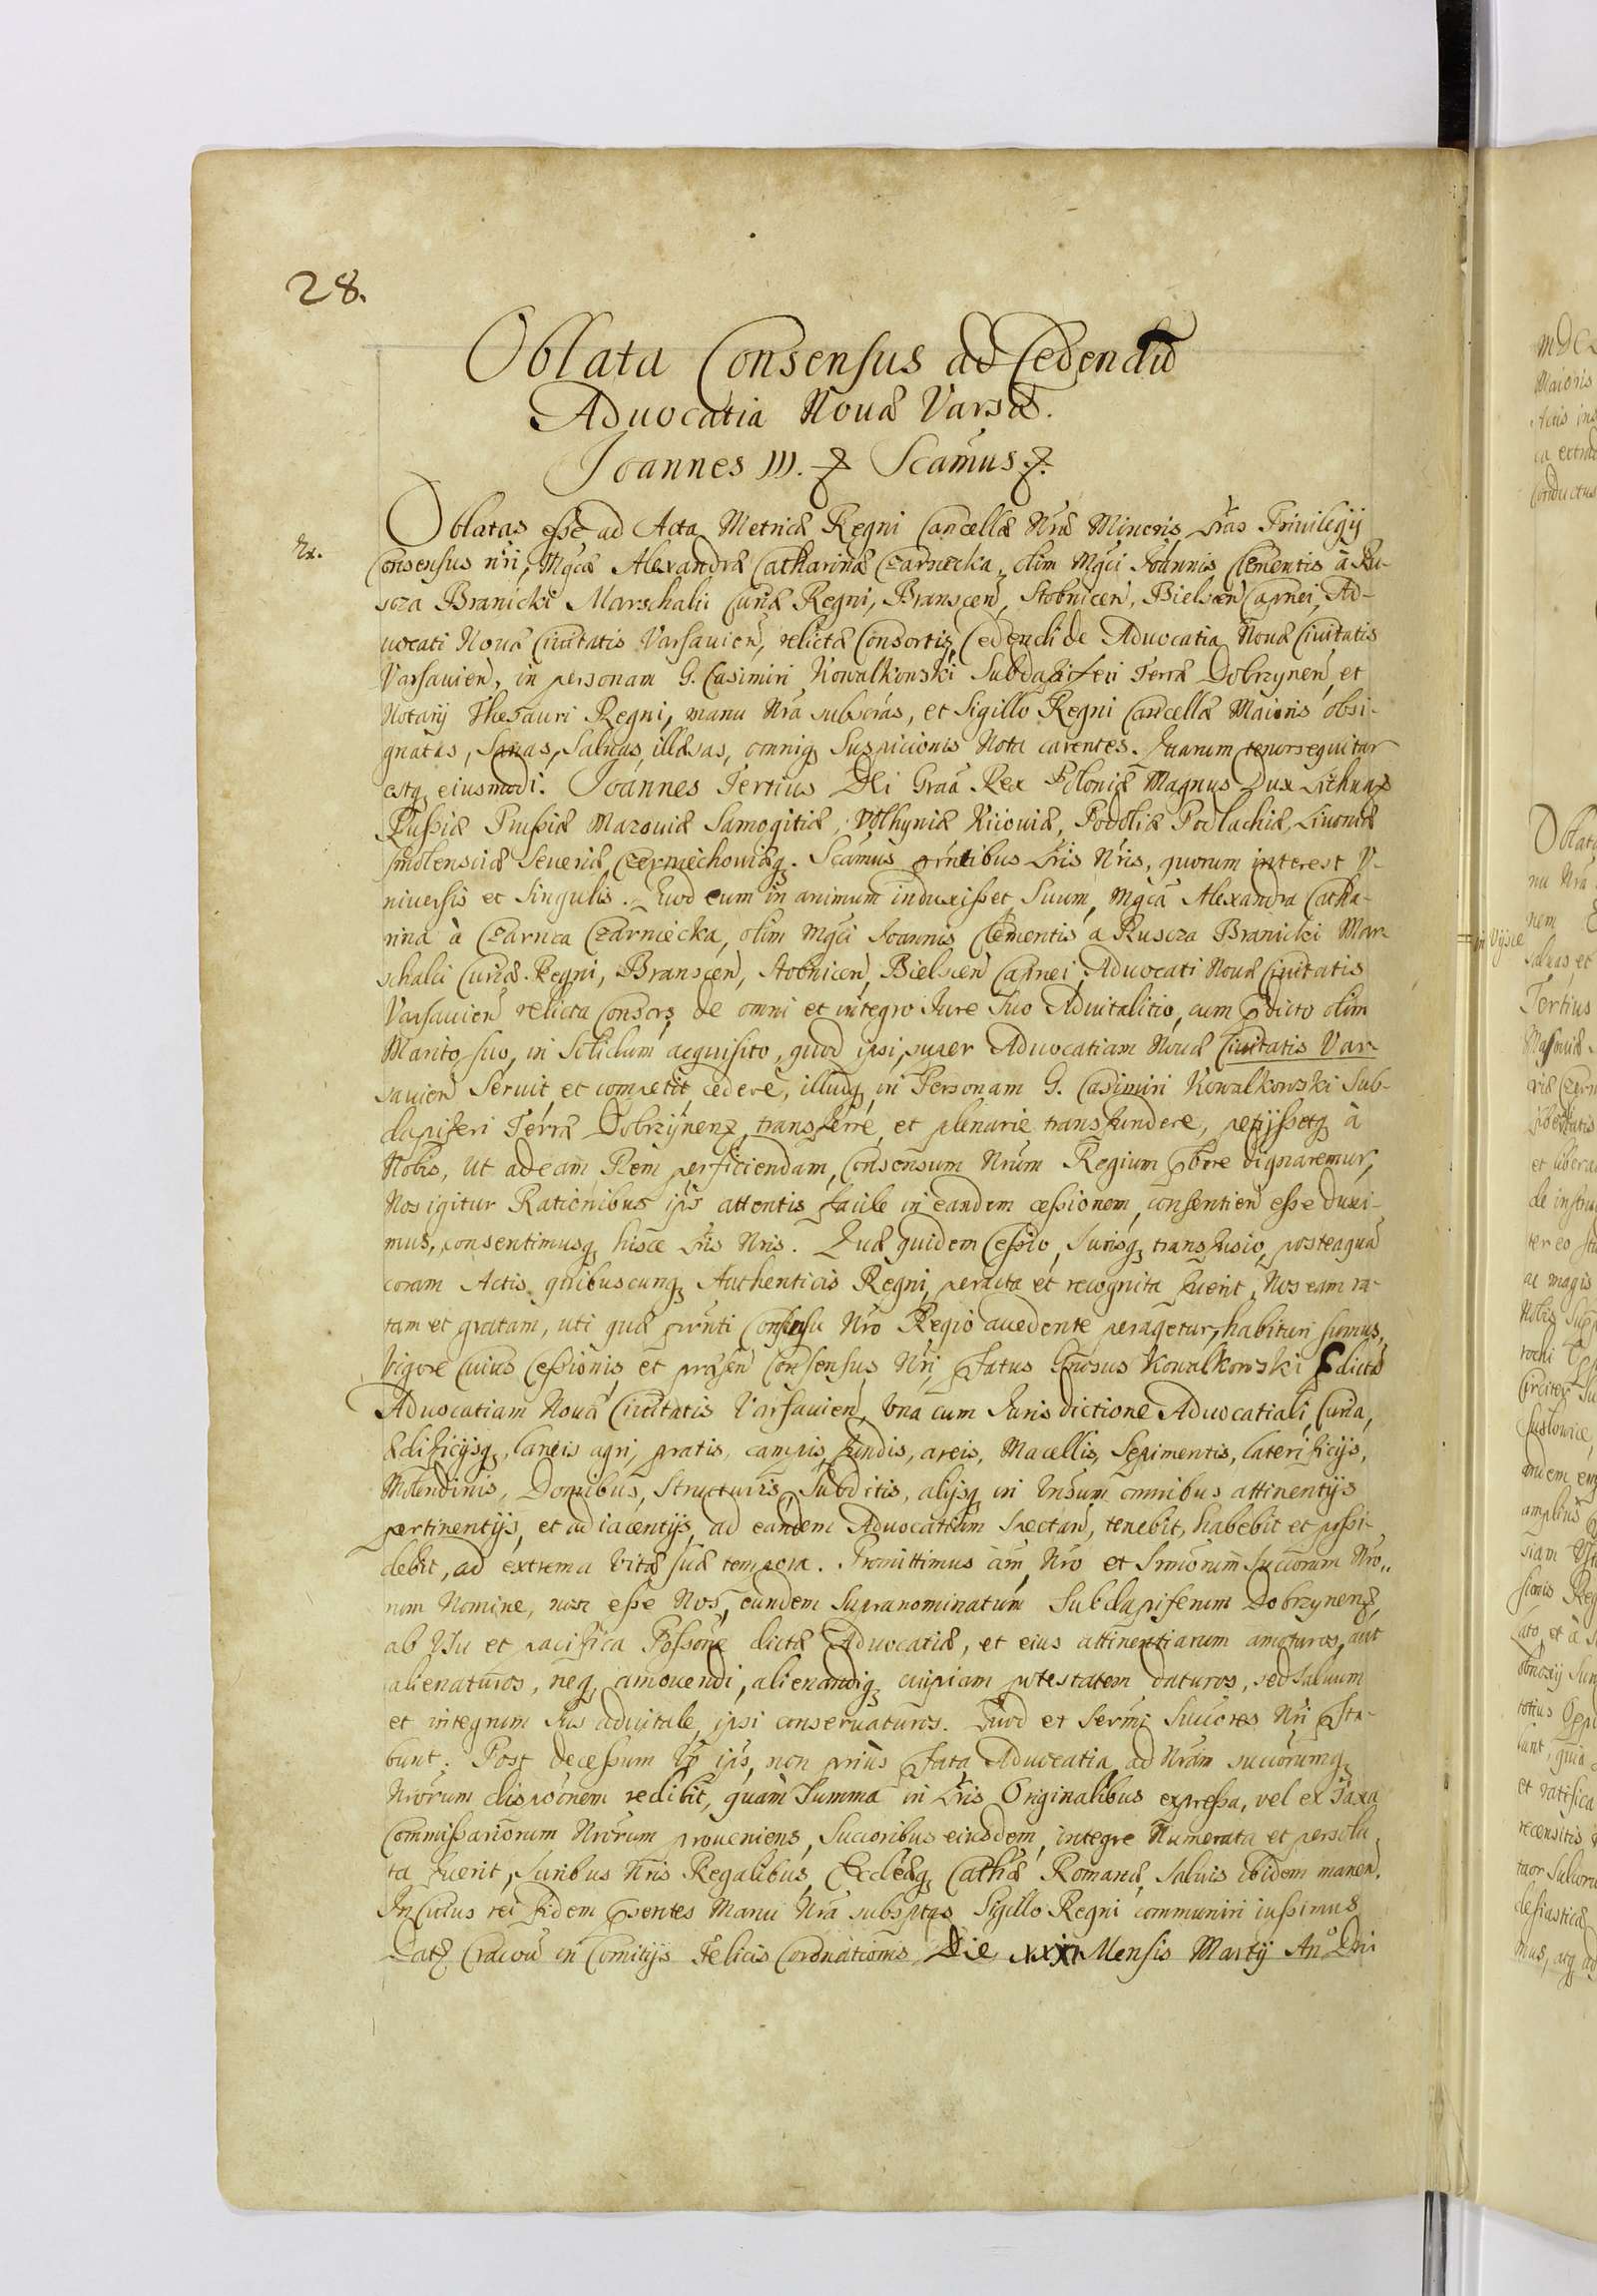 28.
Oblata Consensus ad Cedendū
Aduocatia Nouæ Varsæ.
Joannes III. Scāmus
Oblatas eſſe ad Acta Metricæ Regni Cancellæ Nr̃æ Minoris Lr̃as Priuilegij
Consensus nr̃i, Mgcæ Alexandræ Catharinæ Czarnecka, olim Mgci Joannis Clementis à Ru-
scza Branicki Marschalci Curiæ Regni, Branscen̄, Stobnicen̄, Bielscen̄ Capnei, Ad-
uocati Nouæ Ciuitatis Varsauien̄, relictæ Consortis, Cedendi de Aduocatia Nouæ Ciuitatis
Varsauien̄, in personam G. Casimiri Kowalkowski Subdapiferi Terræ Dobrzynen̄, et
Notarij Thesauri Regni, manu Nr̃a subscr̃as, et Sigillo Regni Cancellæ Maioris obsi-
gnatas, Sanas, Saluas, illæsas, omniq, Suspicionis Nota carentes. Quarum tenor sequitur
estq, eiusmodi. Joannes Tertius Dei Gr̃aa Rex Poloniæ Magnus Dux Lithuaæ
Rußiæ Prußiæ Mazouiæ Samogitiæ, Volhyniæ Kiiouiæ, Podoliæ Podlachiæ, Liuoniæ
Smolensciæ Seueriæ Czerniechouiæq. Scāmus prñtibus Lr̃is Nr̃is, quorum interest V-
niuersis et Singulis. Quod cum in animum induxiſset Suum, Mgcā Alexandra Catha-
rina à Czarnca Czarniecka, olim Mgci Joannis Clementis à Ruscza Branicki Mar-
schalci Curiæ Regni, Branscen̄, Stobnicen̄, Bielscen̄ Capnei, Aduocati Nouæ Ciuitatis
Varsauien̄ relicta Consors, de omni et integro Jure Suo Aduitalitio, cum p̃dicto olim
Marito suo, in Solidum acquisito, quod ipsi, super Aduocatiam Nouæ Ciuitatis Var-
sauien̄ Seruit, et competit, cedere, illudq, in Personam G. Casimiri Kowalkowski Sub-
dapiferi Terræ Dobrzynen̄, transferre, et plenarie transfundere, petijſsetq, à
Nobis, ut ad eam Rem perficiendam, Consensum Nrũm Regium p̃bere dignaremur,
Nos igitur Rationibus ip̃s attentis, facile in eandem ceßionem, consentien̄ eſse duxi-
mus, consentimusq, hisce Lr̃is Nr̃is. Quæ quidem Ceßio, Jurisq, transfusio, posteaquā
coram Actis, quibuscunq, Authenticis Regni, peracta et recognita fuerit, Nos eam ra-
tam et gratam, uti quæ prñti Consensu Nr̃o Regio accedente peragetur, habituri sumus,
Vigore Cuius Ceßionis, et præsen̄ Consensus Nr̃i, p̃fatus Gn̄osus Kowalkowski p̃dictā
Aduocatiam Nouæ Ciuitatis Varsauien̄, Una cum Jurisdictione Aduocatiali, Curia,
Ædificijsq, laneis agri, pratis, campis, fundis, areis, Macellis, Sepimentis, laterificijs,
Molendinis, Domibus, Structuris, Subditis, alijsq, in Vnsum omnibus attinentijs
pertinentijs, et adiacentijs, ad eandem Aduocatiam Spectan̄, tenebit, habebit et poßi-
debit, ad extrema Vitæ suæ tempora. Promittimus aūm, Nr̃o et Srmōrum Succōrum Nr̃o,,
rum Nomine, non eſse Nos, eundem Supranominatum Subdapiferum Dobrzynen̄,
ab Vsu et pacifica Poſsōne dictæ Aduocatiæ, et eius attinentiarum amoturos, aut
alienaturos, neq, amouendi, alienandiq, cuipiam potestatem daturos, sed Saluum
et integrum Jus aduitale, ipsi conseruaturos. Quod et Serm̃i Succores Nr̃i p̃sta-
bunt. Post deceßum V̊ ip̃s, non prius p̃fata Aduocatia, ad Nrãm succōrumq,
Nrõrum disposōnem redibit, quàm Summa in Lr̃is Originalibus expreßa, vel ex Taxa
Commiſsariorum Nrõrum proueniens, Succoribus eiusdem, integre Numerata et persolu-
ta fuerit, Juribus Nr̃is Regalibus, Eccleæq, Cathæ Romanæ, Saluis ibidem manen̄.
In Cuius rei fidem p̃sentes Manu Nr̃a subsptas Sigillo Regni communiri iußimus
Dat. Cracouiæ in Comitijs Felicis Coronationis Die XXX Mensis Martij Anº Dni